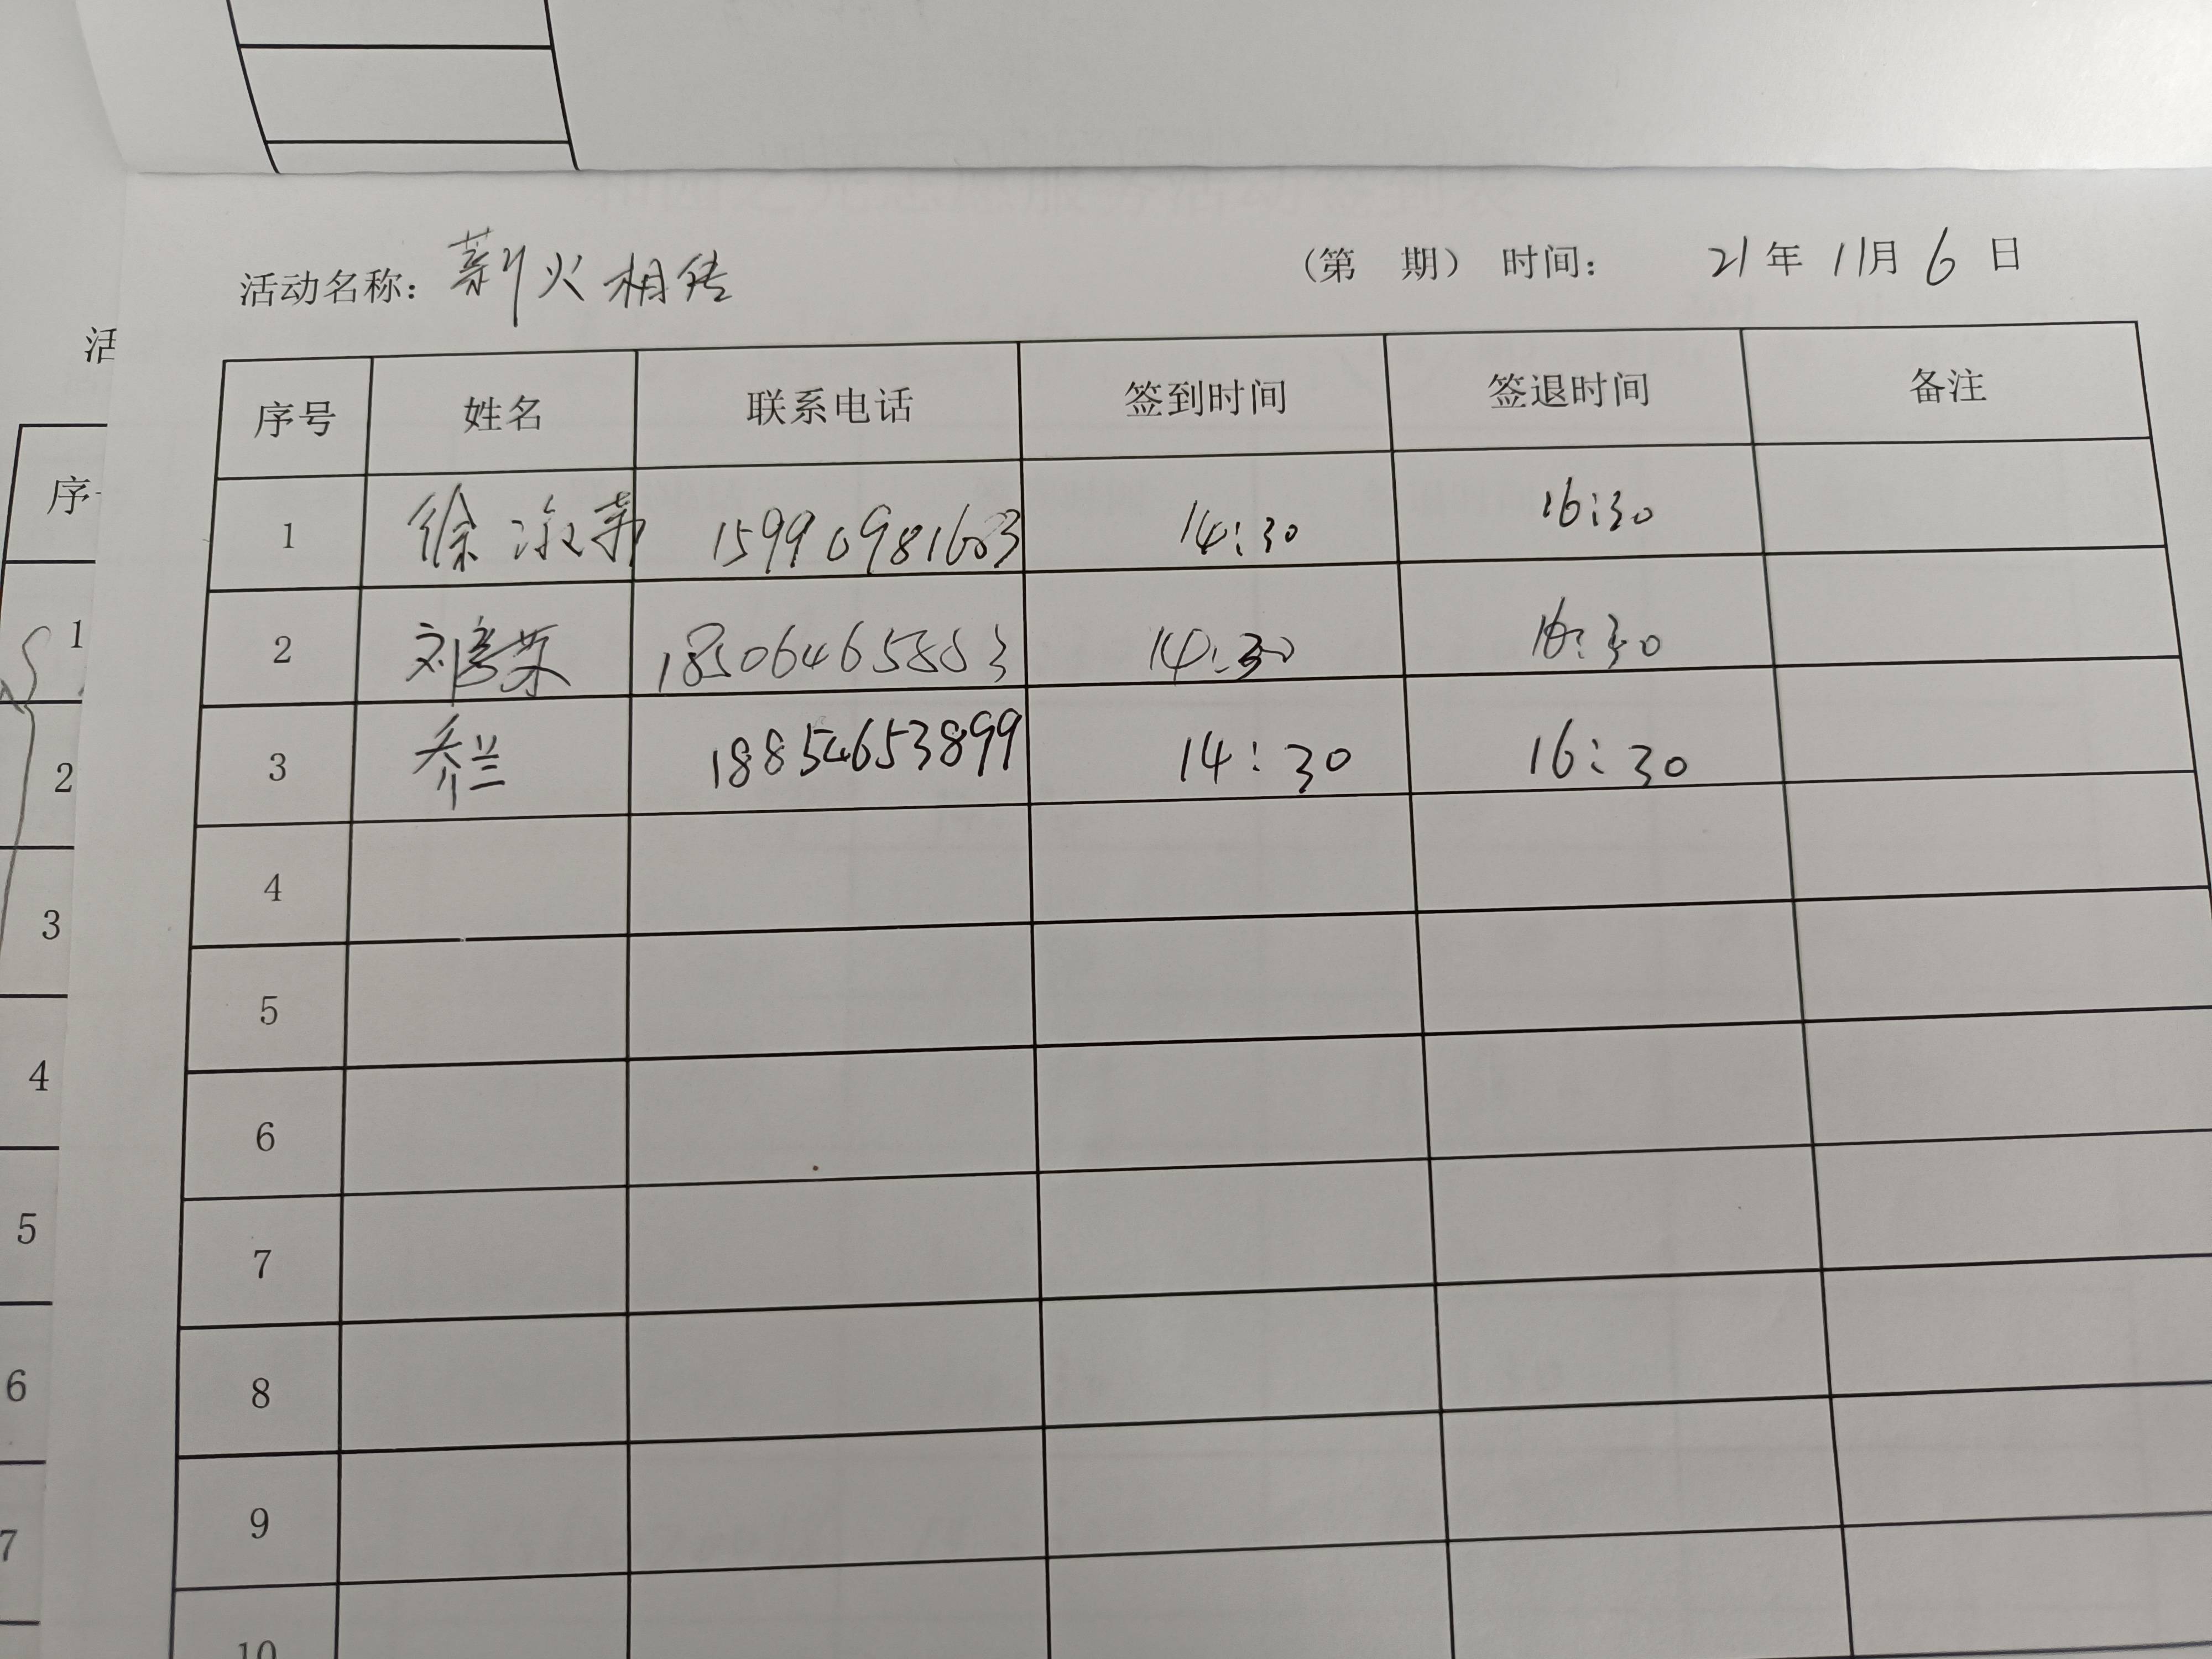 活动名称：薪火相传 （第 期） 时间： 21年11月6日
序号 姓名 联系电话 签到时间 签退时间 备注
1 徐淑 15990981603 14:30 16:30
2 刘 荣 18506465883 14:30 16:30
3 乔兰 18854653899 14:30 16:30
4
5
6
7
8
9
10
活
序
1
2
3
4
5
6
7